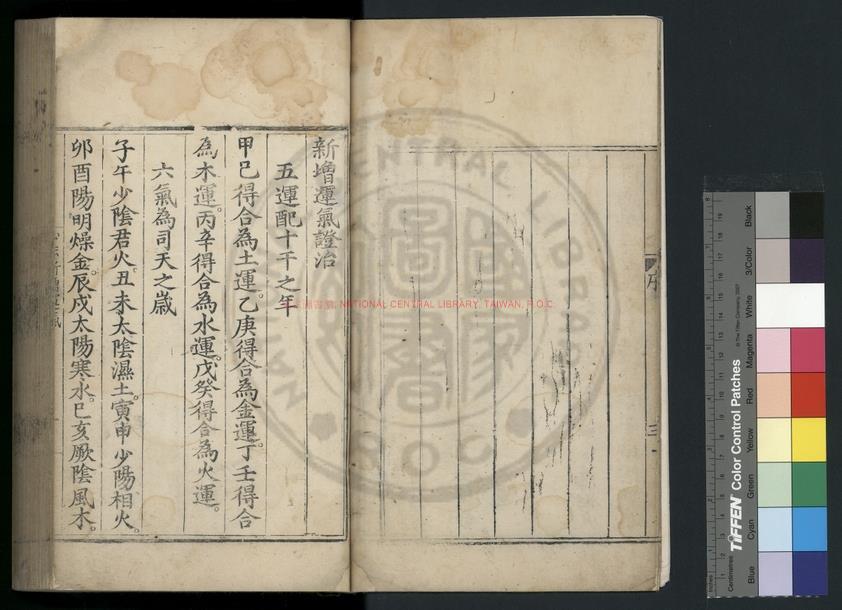 序
三
新增運氣證治
五運配十干之年
甲己得合為土運。乙庚得合為金運。丁壬得合
為木運。丙辛得合為水運。戊癸得合為火運。
六氣為司天之歲
子午少陰君火。丑未太陰濕土。寅申少陽相火。
卯酉陽明燥金。辰戌太陽寒水。巳亥厥陰風木。
NATIONAL CENTRAL LIBRARY, TAIWAN, R.O.C
TIFFEN Color Control Patches
© The Tiffen Company, 2007
Centimetres
Blue
Cyan
Green
Yellow
Red
Magenta
White
3/Color
Black